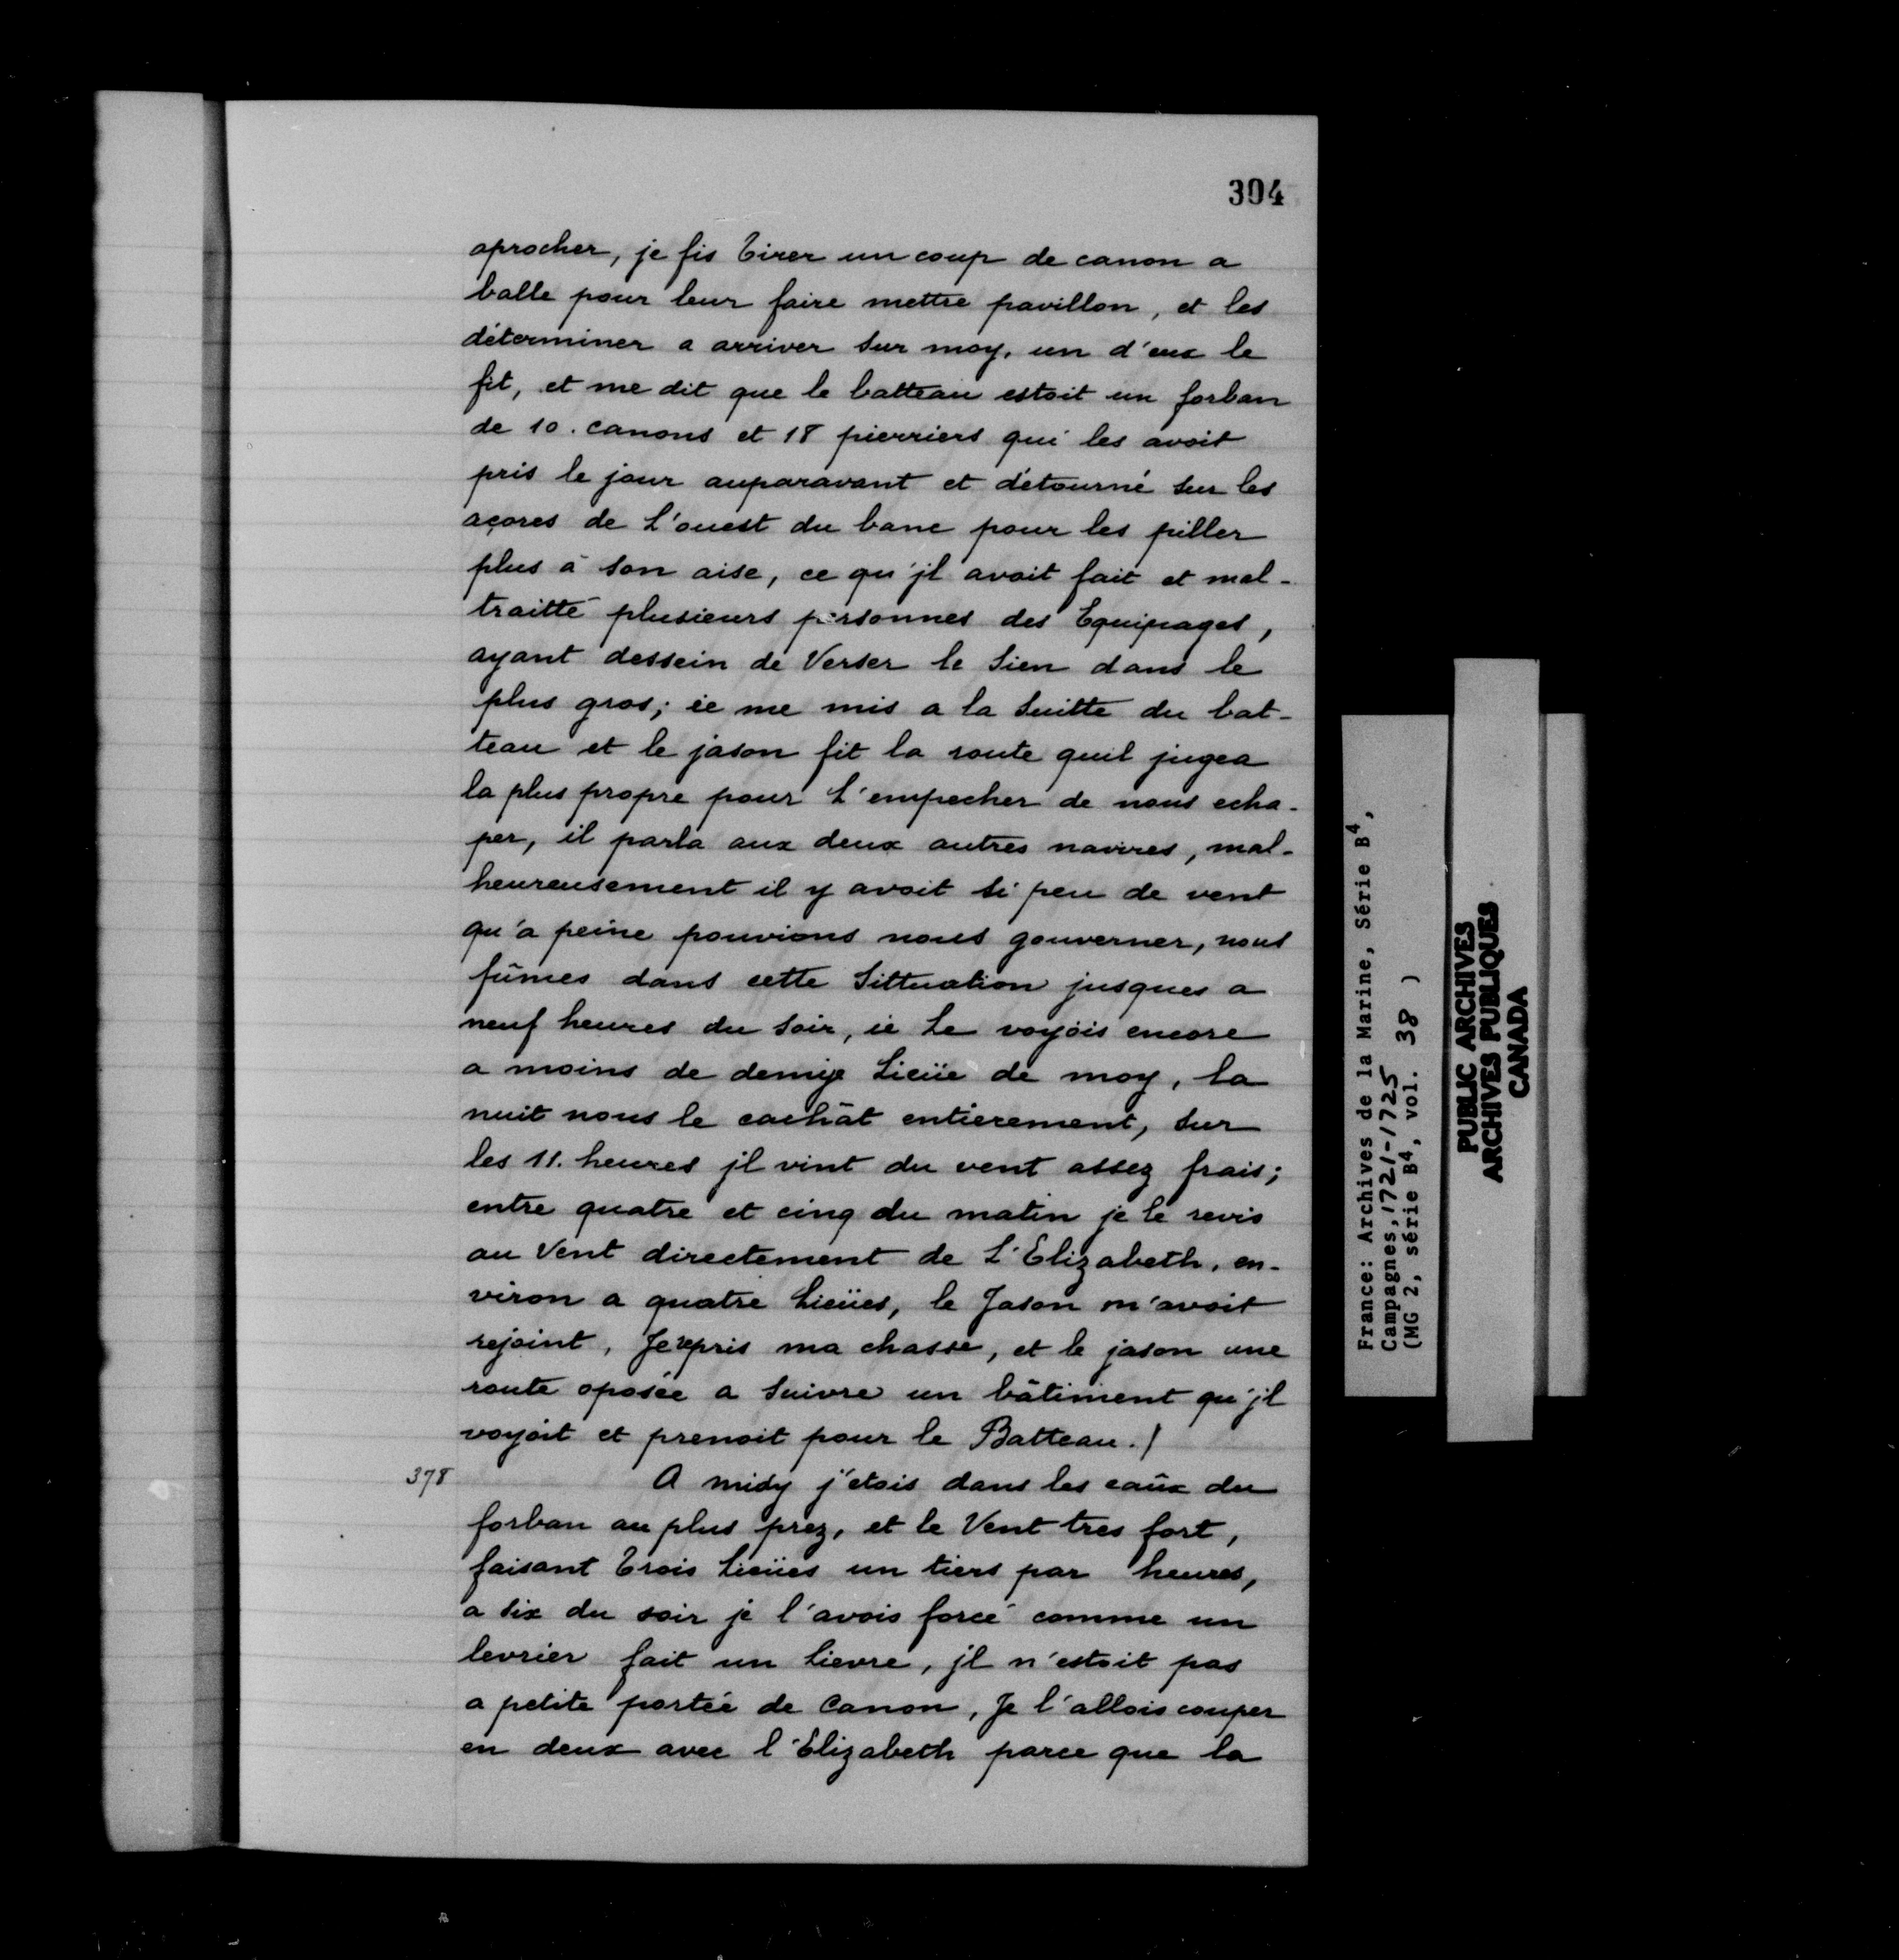 304
aprocher, je fis tirer un coup de canon a
balle pour leur faire mettre pavillon, et les
déterminer a arriver sur moy, un d'eux le
fit, et me dit que le batteau estoit un forban
de 10. canons et 18 pierriers qui les avoit
pris le jour auparavant et détourné sur les
açores de l'ouest du banc pour les piller
plus à son aise, ce qu'jl avoit fait et mal-
traitté plusieurs personnes des Equipages,
ayant dessein de Verser le sien dans le
plus gros; ie me mis a la suitte du bat-
teau et le jason fit la route quil jugea
la plus propre pour l'empecher de nous echa-
per, il parla aux deux autres navires, mal-
heureusement il y avoit si peu de vent
qu'a peine pouvions nous gouverner, nous
fûmes dans cette sittuation jusques a
neuf heures du soir, ie le voyois encore
a moins de demye lieüe de moy, la
nuit nous le cachât entierement, sur
les 11. heures jl vint du vent assez frais;
entre quatre et cinq du matin je le revis
au Vent directement de l'Elizabeth, en-
viron a quatre lieües, le Jason m'avoit
rejoint, Je repris ma chasse, et le jason une
route oposée a suivre un bâtiment qu'jl
voyoit et prenoit pour le Batteau./
378
A midy j'etois dans les eaûx du
forban au plus prez, et le Vent tres fort,
faisant trois lieües un tiers par heures,
a six du soir je l'avois forcé comme un
levrier fait un lievre, jl n'estoit pas
a petite portée de Canon, Je l'allois couper
en deux avec l'Elizabeth parce que la
France: Archives de la Marine, Série B4,
Campagnes, 1721-1725
(MG 2, série B4, vol. 38 )
PUBLIC ARCHIVES
ARCHIVES PUBLIQUES
CANADA